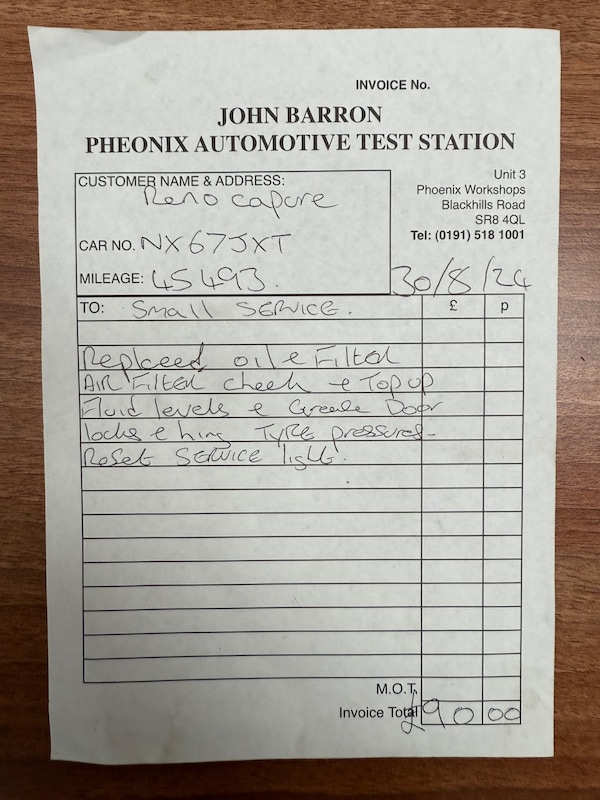 INVOICE No.
JOHN BARRON
PHEONIX AUTOMOTIVE TEST STATION
Unit 3
Phoenix Workshops
Blackhills Road
SR8 4QL
Tel: (0191) 518 1001
CUSTOMER NAME & ADDRESS:
Reno capure
CAR NO. NX67JXT
MILEAGE: 45493.
30/8/24
TO: Small SERVICE. £ p
Replceed oil e Filter
AIR Filter check e Top up
Fluid levels e Grease Door
locks e hing TYRE pressures-
Reset SERVICE light.
M.O.T.
Invoice Total £90 00